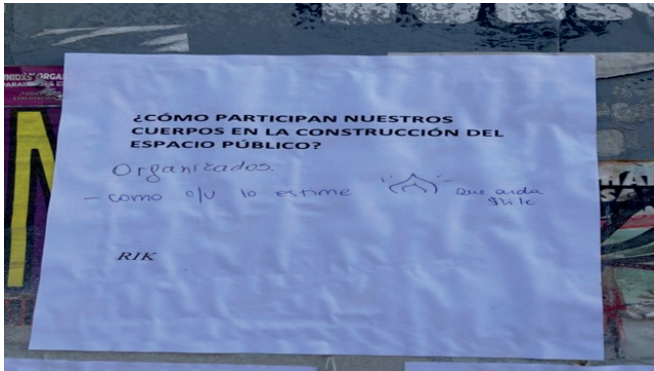 UNIDAS ORGA
¿CÓMO PARTICIPAN NUESTROS
CUERPOS EN LA CONSTRUCCIÓN DEL
ESPACIO PÚBLICO?
Organizados.
– como c/u lo estime que arda
RIK